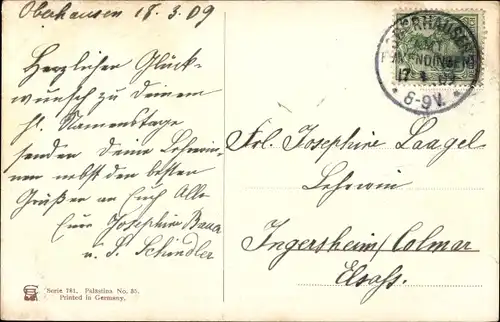 Oberhausen 18.3.09
Herzlichen Glück-
wunsch zu deinem
hl. Namenstage
senden deine Lehrerin-
nen nebst den besten
Grüßen an Euch Alle
Eure Josephine Baur
u. S. Schindler
OBERHAUSEN
6-9V.
Frl. Josephine Laagel
Lehrerin
Ingersheim/Colmar
Elsaß.
Serie 781. Palästina No. 35.
Printed in Germany.